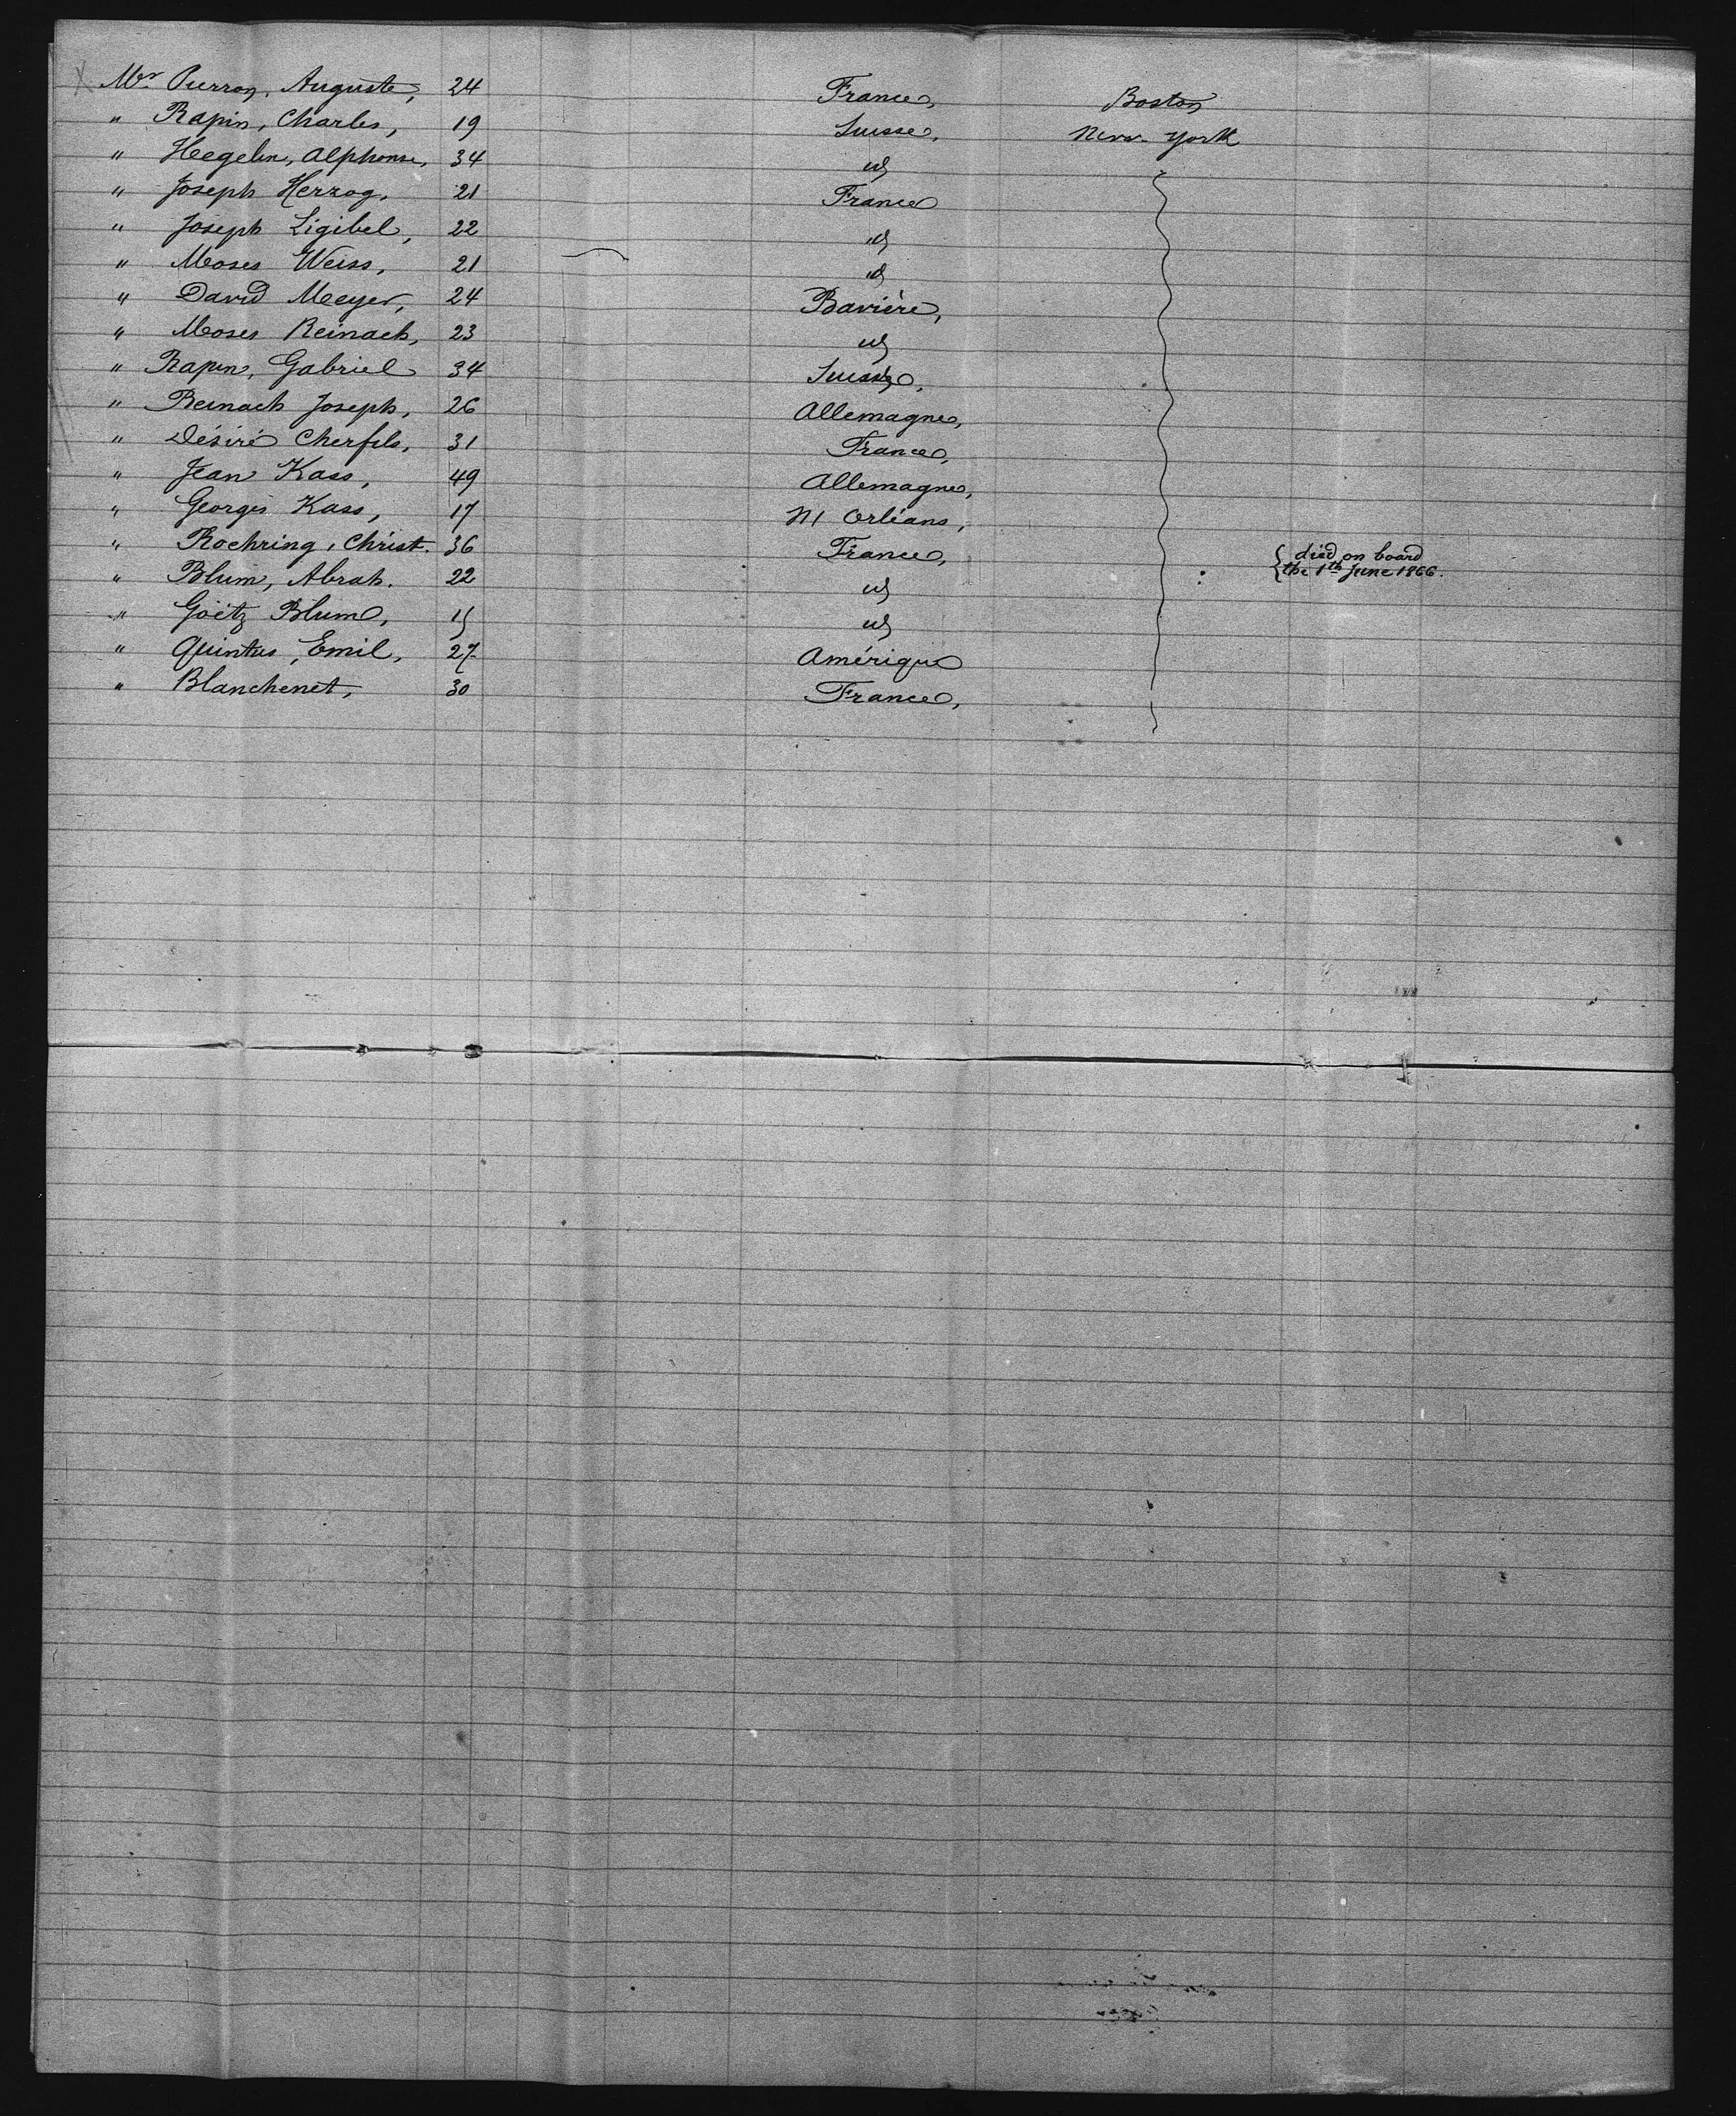 Mr Pierron, Auguste, 24 France, Boston
" Rapin, Charles, 19 Suisse, New-York
" Heegelin, Alphonse, 34 id
" Joseph Herzog, 21 France
" Joseph Ligibel, 22 id
" Moses Weiss, 21 id
" David Meeyer, 24 Bavière,
" Moses Reinach, 23 id
" Rapin, Gabriel 34 Suisse,
" Reinach Joseph, 26 Allemagne,
" Désiré Cherfils, 31 France,
" Jean Kass, 49 Allemagne,
" Georges Kass, 17 Nl Orléans,
" Roehring, Christ. 36 France, { died on board
" Blum, Abrah. 22 id { the 1th June 1866.
" Göetz Blum, id
" Quintus, Emil, 27 Amérique
" Blanchenet, 30 France,